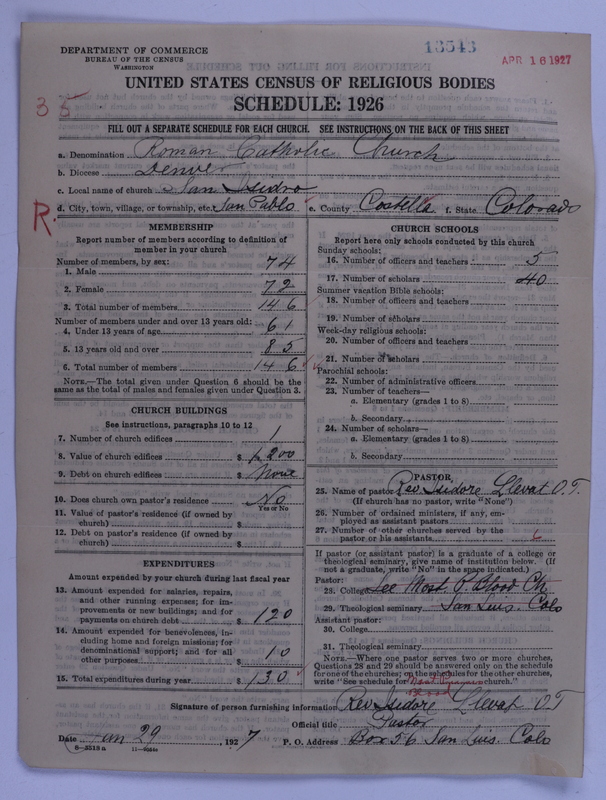 DEPARTMENT OF COMMERCE
BUREAU OF THE CENSUS
WASHINGTON
13543
APR 16 1927
UNITED STATES CENSUS OF RELIGIOUS BODIES
SCHEDULE: 1926
3 5
FILL OUT A SEPARATE SCHEDULE FOR EACH CHURCH. SEE INSTRUCTIONS ON THE BACK OF THIS SHEET
a. Denomination Roman Catholic Church
b. Diocese Denver
c. Local name of church San Isidro
R.
d. City, town, village, or township, etc. San Pablo e. County Costilla f. State Colorado
MEMBERSHIP
Report number of members according to definition of
member in your church
Number of members, by sex:
1. Male 74
2. Female 72
3. Total number of members 146
Number of members under and over 13 years old:
4. Under 13 years of age 61
5. 13 years old and over 85
6. Total number of members 146
NOTE.—The total given under Question 6 should be the
same as the total of males and females given under Question 3.
CHURCH BUILDINGS
See instructions, paragraphs 10 to 12
7. Number of church edifices 1
8. Value of church edifices $ 1,200
9. Debt on church edifices $ None
10. Does church own pastor's residence No
Yes or No
11. Value of pastor's residence (if owned by
church) $
12. Debt on pastor's residence (if owned by
church) $
EXPENDITURES
Amount expended by your church during last fiscal year
13. Amount expended for salaries, repairs,
and other running expenses; for im-
provements or new buildings; and for
payments on church debt $ 120
14. Amount expended for benevolences, in-
cluding home and foreign missions; for
denominational support; and for all
other purposes $ 10
15. Total expenditures during year $ 130
CHURCH SCHOOLS
Report here only schools conducted by this church
Sunday schools:
16. Number of officers and teachers 5
17. Number of scholars 40
Summer vacation Bible schools:
18. Number of officers and teachers
19. Number of scholars
Week-day religious schools:
20. Number of officers and teachers
21. Number of scholars
Parochial schools:
22. Number of administrative officers
23. Number of teachers—
a. Elementary (grades 1 to 8)
b. Secondary
24. Number of scholars—
a. Elementary (grades 1 to 8)
b. Secondary
PASTOR
25. Name of pastor Rev. Isidore Llevat O.T.
(If church has no pastor, write "None")
26. Number of ordained ministers, if any, em-
ployed as assistant pastors
27. Number of other churches served by the
pastor or his assistants
If pastor (or assistant pastor) is a graduate of a college or
theological seminary, give name of institution below. (If
not a graduate, write "No" in the space indicated.)
Pastor:
28. College See Most P. Blood Ch.
29. Theological seminary San Luis. Colo
Assistant pastor:
30. College
31. Theological seminary
NOTE.—Where one pastor serves two or more churches,
Questions 28 and 29 should be answered only on the schedule
for one of the churches; on the schedules for the other churches,
write "See schedule for Most Precious church."
Blood
Signature of person furnishing information Rev. Isidore Llevat O.T
Official title Pastor
Date Jan 29, 1927 P. O. Address Box 56 San Luis. Colo